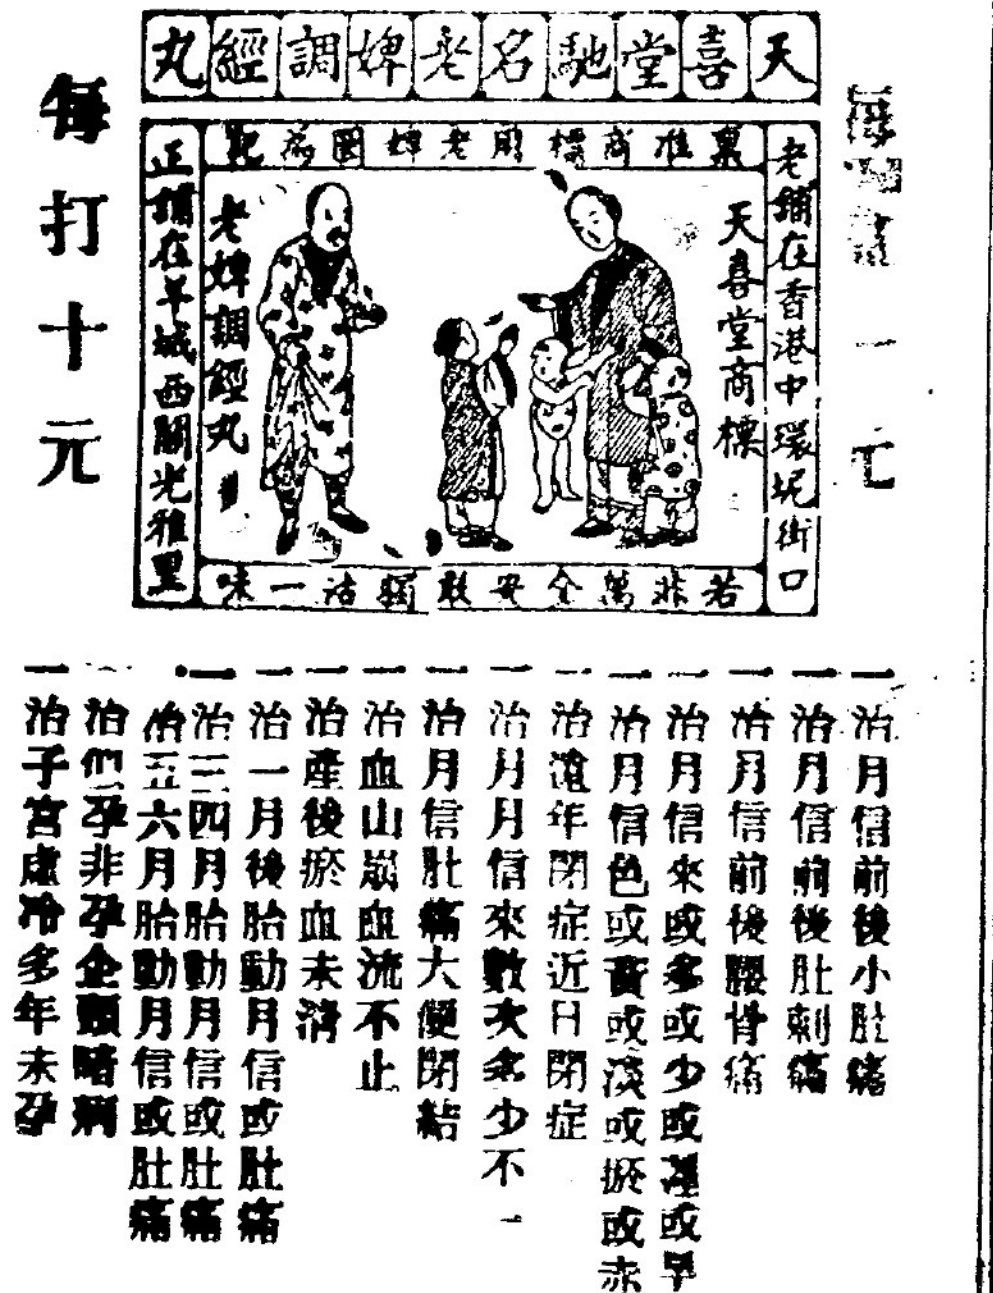 天喜堂馳名老婢調經丸
稟准商標用老婢圖為記
老鋪在香港中環坭街口
天喜堂商標
老婢調經丸
正鋪在羊城西關光雅里
若非萬全安敢獨沽一味
一元
每打十元
一治月信前後小肚痛
一治月信前後肚刺痛
一治月信前後腰骨痛
一治月信來或多或少或遲或早
一治月信色或黃或淡或瘀或赤
一治遠年閉症近日閉症
一治月月信來數次多少不一
一治月信肚痛大便閉結
一治血山崩血流不止
一治產後瘀血未清
一治一月後胎動月信或肚痛
一治三四月胎動月信或肚痛
一治五六月胎動月信或肚痛
一治似孕非孕企頭暗病
一治子宮虛冷多年未孕